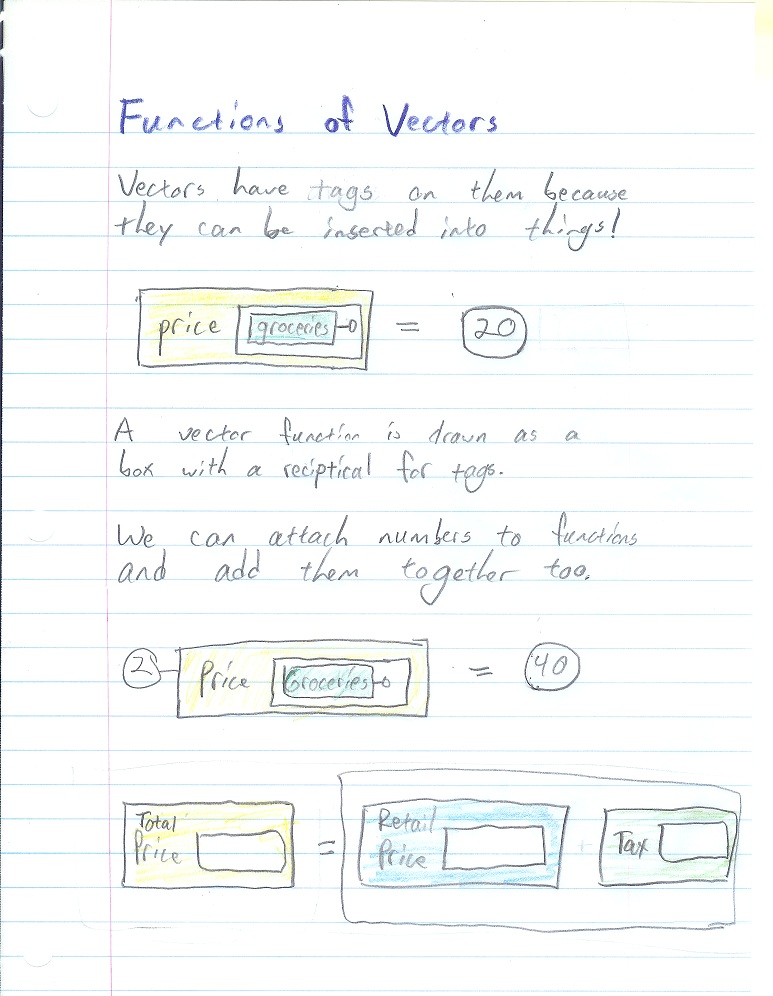 Functions of Vectors
Vectors have tags on them because
they can be inserted into things!
price groceries = 20
A vector function is drawn as a
box with a reciptical for tags.
We can attach numbers to functions
and add them together too.
2 Price Groceries = 40
Total Price = Retail Price + Tax